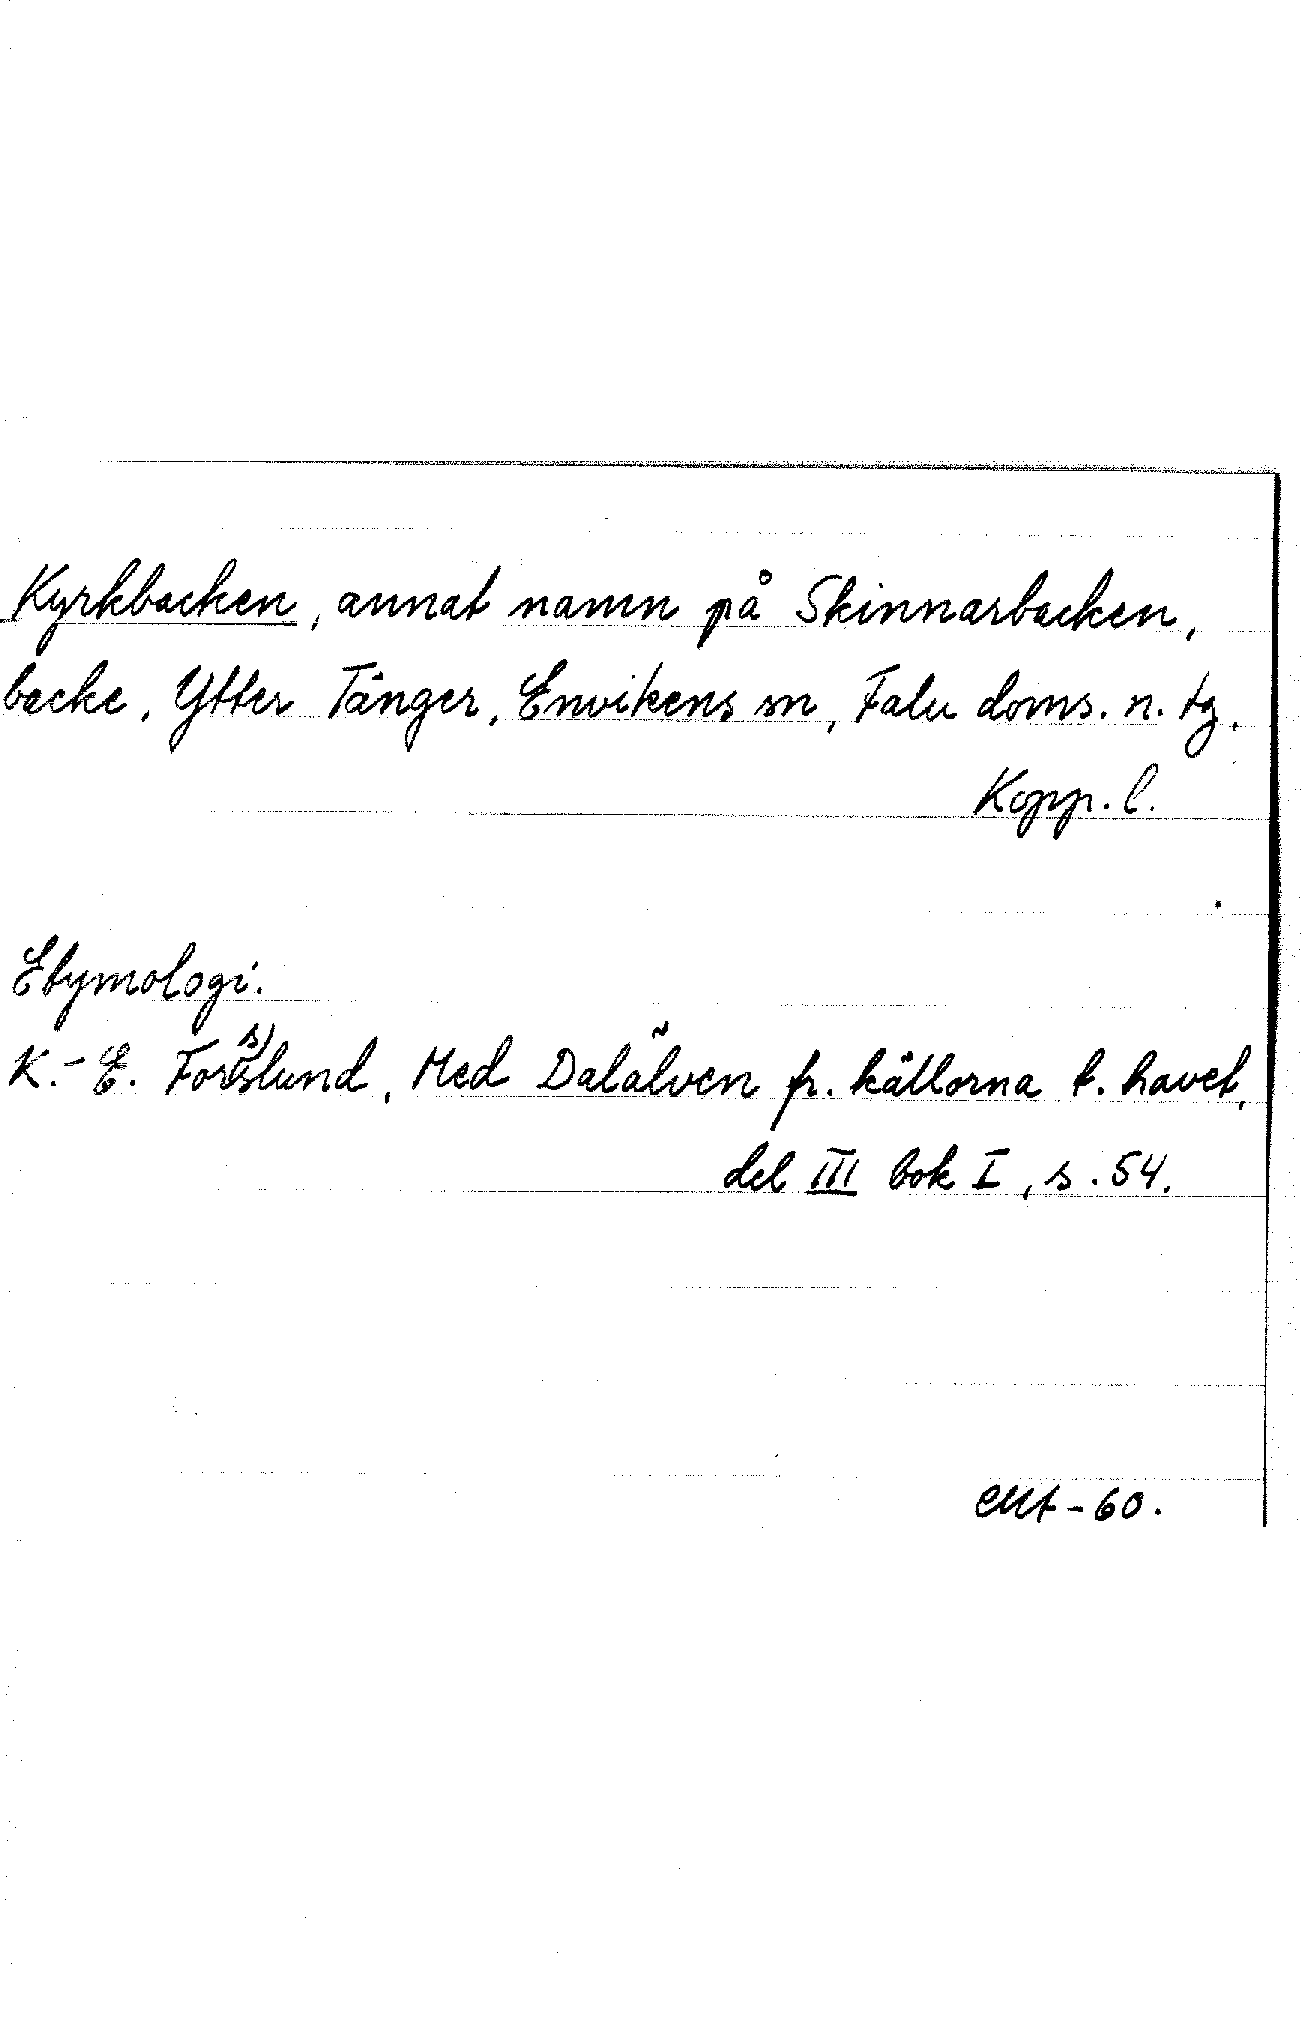 Kyrkbacken, annat namn på Skinnarbacken,
backe, Ytter Tänger, Envikens sn, Falu doms. n. tg.
Kopp. l.
Etymologi.
K.-E. Forsslund, Med Dalälven fr. källorna t. havet,
del III bok I, s. 54.
EMt-60.